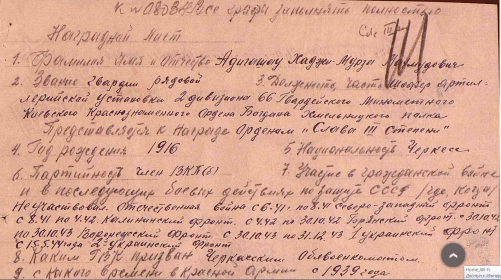 к № 0873/н Все графы заполнять полностью
Наградной лист
1. Фамилия Имя и Отчество Адигашоу Хаджи-Мурза Махмудович
2. Звание гвардии рядовой 3. Должность, часть шофер артил-
лерийской установки 2 дивизиона 66 Гвардейского Минометного
Киевского Краснознаменного Ордена Богдана Хмельницкого полка
Представляется к Награде Орденом "Слава III Степени"
4. Год рождения 1916 5 Национальность Черкес
6. Партийность член ВКП(б) 7. Участие в гражданской войне
и в последующих боевых действиях по защите СССР /где, когда/
Не участвовал. Отечественная война с 6.41г по 8.41 Северо-западной фронт
с 8.41 по 4.42 Калининский фронт. с 4.42 по 30.10.42 фронт. с 30.10.42
по 30.10.43 Воронежский фронт. с 30.10.43 по 31.12.43 1 украинский фронт
с 15.5.44 года 2й украинский фронт
8. Каким РВК призван Черкасским Облвоенкоматом.
9. с какого времени в Красной Армии с 1939 года